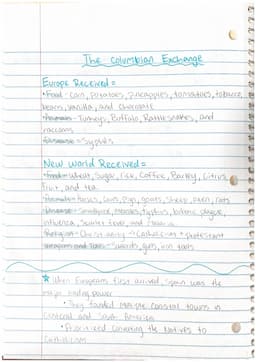 The Columbian Exchange
Europe Received =
• Food - Corn, potatoes, pineapples, tomatoes, tobacco,
beans, vanilla, and chocolate
• Animals - Turkeys, Buffalo, Rattlesnakes, and
raccoons
• Disease - Syphilis
New World Received =
• Food - Wheat, Sugar, Rice, Coffee, Barley, Citrus
fruit, and tea
• Animals - Horses, Cows, pigs, goats, sheep, oxen, rats
• Disease - Smallpox, measles, typhus, bubonic plague,
influenza, scarlet fever, and
• Religion - Christianity Catholic + protestant
Weapons and Tools - Swords, gun, iron tools
When Europeans first arrived, Spain was the
major power
• They founded multiple coastal towns in
Central and South America
• Prioritized converting the Natives to
Catholicism